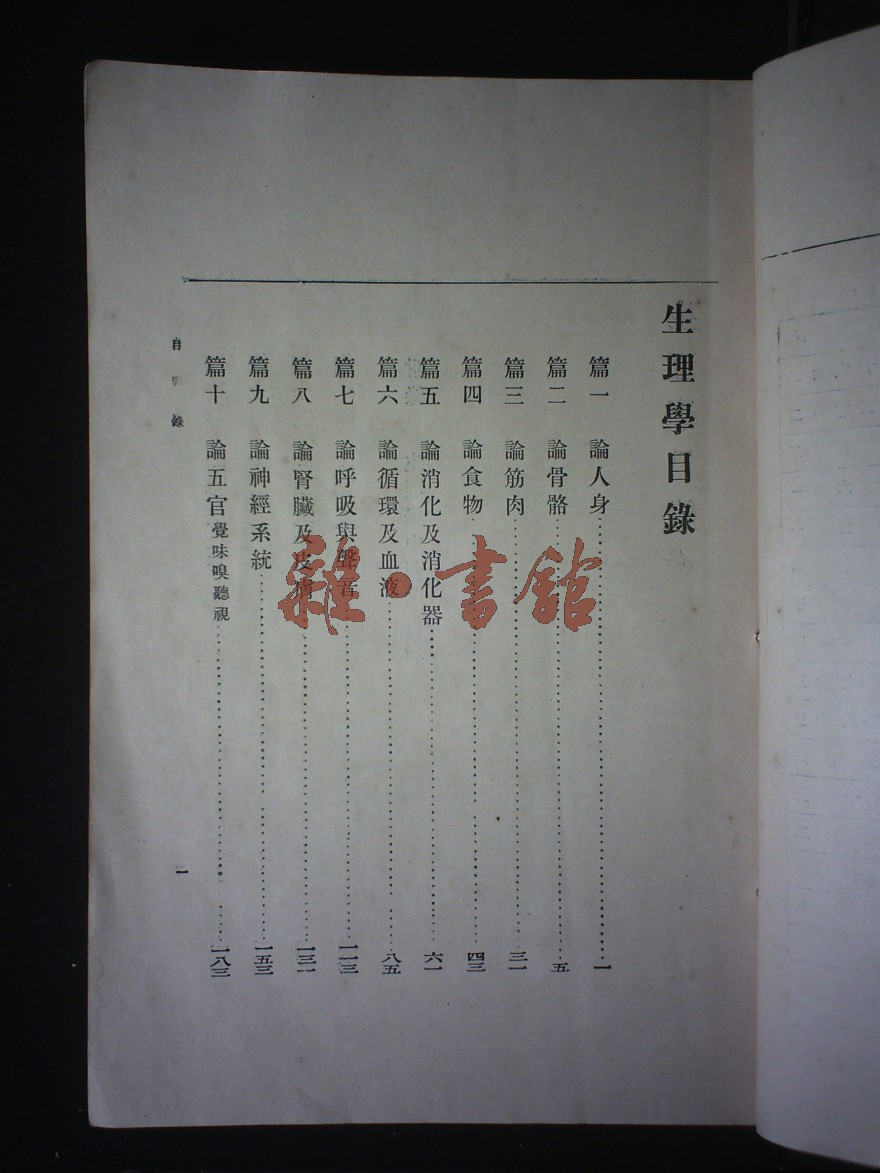 生理學目錄
篇一 論人身 一
篇二 論骨骼 五
篇三 論筋肉 三一
篇四 論食物 四三
篇五 論消化及消化器 六一
篇六 論循環及血液 八五
篇七 論呼吸與聲音 一一三
篇八 論腎臟及皮膚 一三一
篇九 論神經系統 一五三
篇十 論五官覺味嗅聽視 一八三
目錄
一
雜·書館